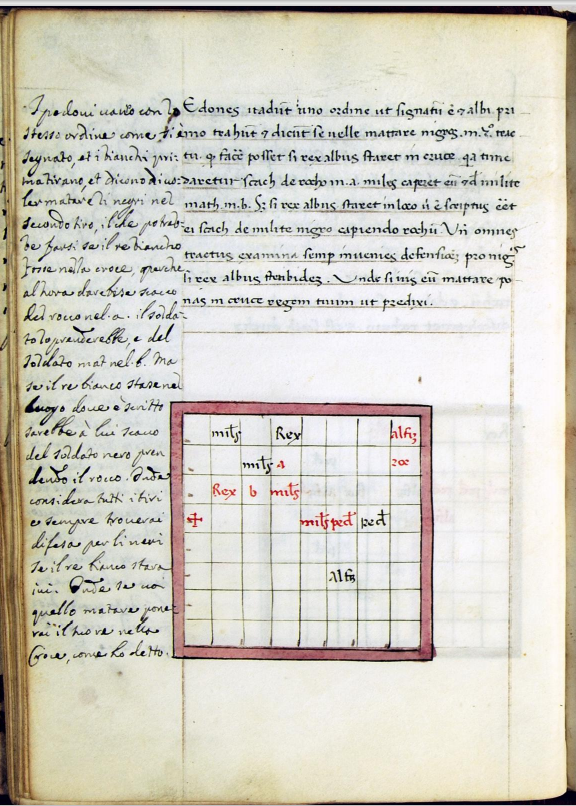 Pedones vadunt uno ordine ut signati et albi pri
mo trahunt et dicunt se velle mattare nigros m
tu. facere posset si rex albus staret in cruce. qa tunc
daretur scach de rocho in a. miles caperet eum milite
math in b. si rex albus staret in loco est scriptus
ei scach de milite nigro capiendo rochum omnes
tractus examina semper invenies pro
si rex albus Unde si vis eum mattare po
nas in cruce regem tuum ut predixi.
I pedoni vanno con lo
stesso ordine come
segnato, et i bianchi pri:
ma tirano, et dicono
ler matare li negri nel
secondo tiro, il che potreb
be farsi se il re biancho
fosse nella croce, perche
al hora darebbe scaco
del rocco nel .a. il solda:
to lo prenderebbe, e del
soldato mat nel .b. Ma
se il re bianco stasse nel
luogo dove è scritto
sarebbe à lui scaco
del soldato nero pren
dendo il rocco. Onde
considera tutti i tiri
e sempre troverai
difesa per li neri
se il re bianco stara
ivi. Onde se voi
quello matare pone
rai il tuo re nella
Croce, come ho detto.
mils Rex alfis
mils a roc
Rex b mils
✠ mils ped ped
Alfis